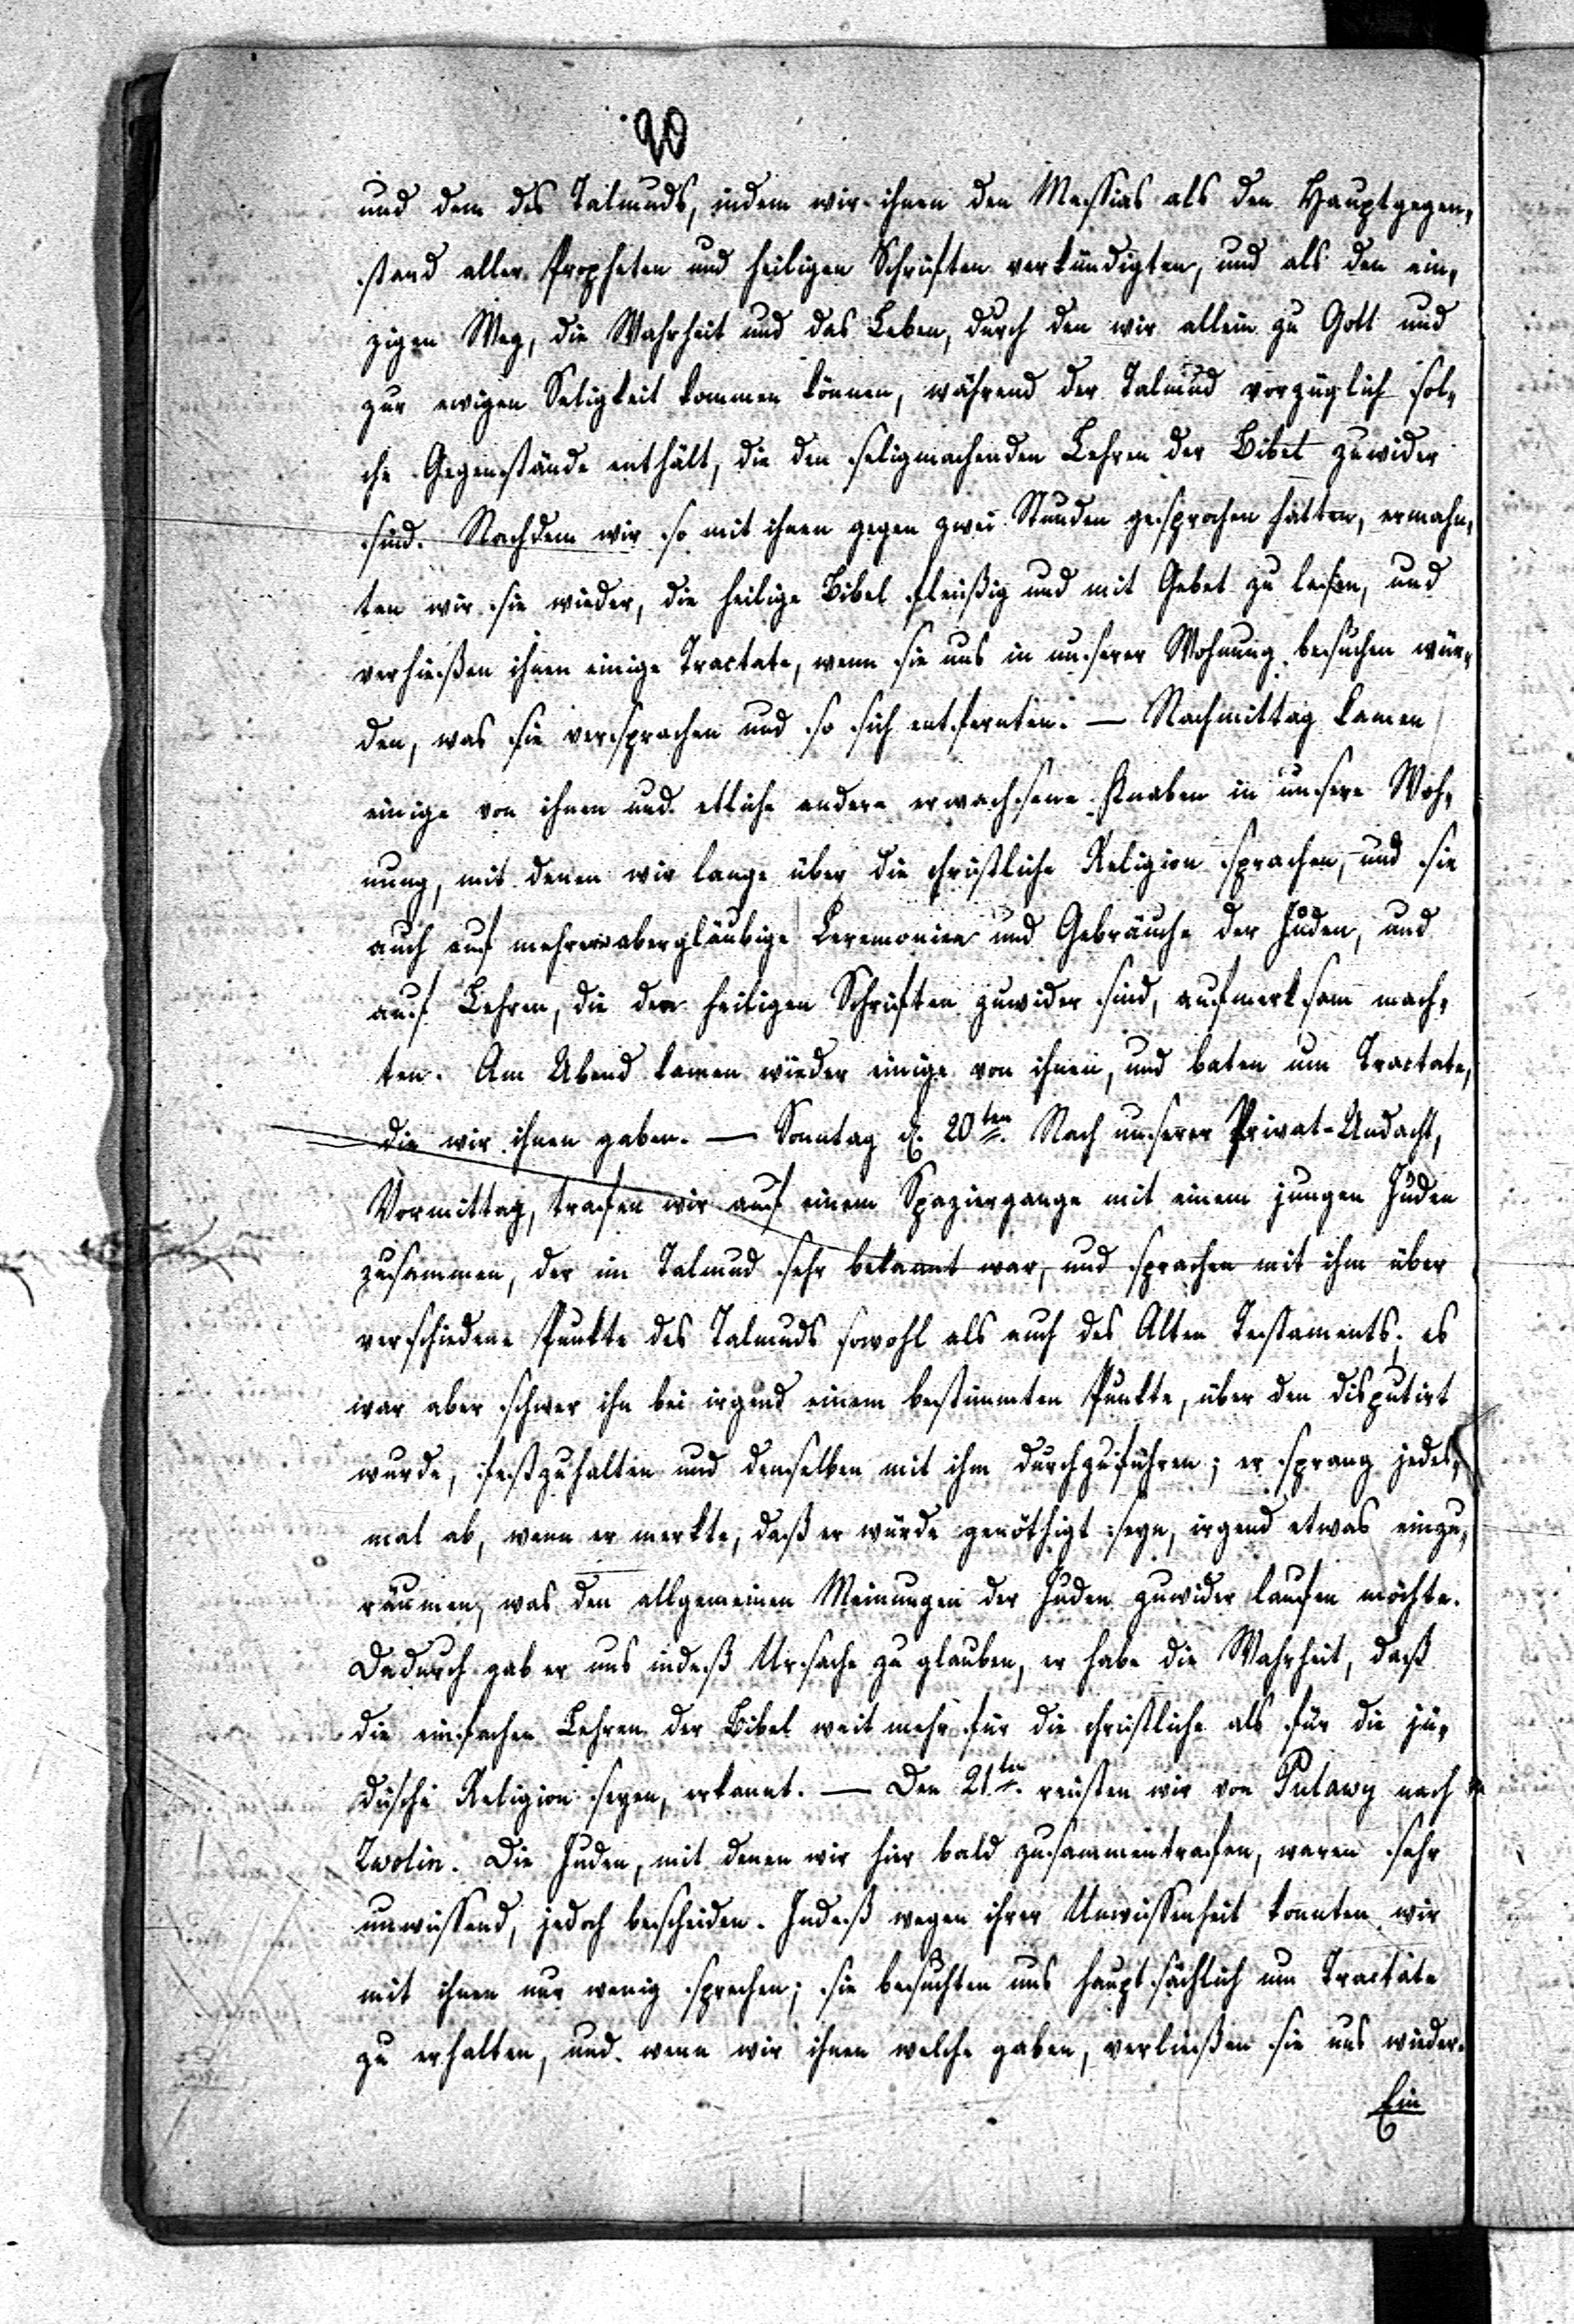 20
und dem des Talmuds, indem wir ihnen den Messias als den Hauptgegen-
stand aller Propheten und heiligen Schriften verkündigten, und als den ein-
zigen Weg, die Wahrheit und das Leben, durch den wir allein zu Gott und
zur ewigen Seligkeit kommen können, während der Talmud vorzüglich sol-
che Gegenstände enthält, die den seligmachenden Lehren der Bibel zuwider
sind. Nachdem wir so mit ihnen gegen zwei Stunden gesprochen hatten, ermahn-
ten wir sie wieder, die heilige Bibel fleißig und mit Gebet zu lesen, und
verhießen ihnen einige Tractate, wenn sie uns in unserer Wohnung besuchen wür-
den, was sie versprachen und so sich entfernten. — Nachmittag kamen
einige von ihnen und etliche andere erwachsene Knaben in unsere Woh-
nung, mit denen wir lange über die christliche Religion sprachen, und sie
auch auf mehrere abergläubige Ceremonien und Gebräuche der Juden, und
auf Lehren, die den heiligen Schriften zuwider sind, aufmerksam mach-
ten. Am Abend kamen wieder einige von ihnen, und baten um Tractate,
die wir ihnen gaben. — Sonntag d. 20ten. Nach unserer Privat-Andacht,
Vormittag, trafen wir auf einem Spaziergange mit einem jungen Juden
zusammen, der im Talmud sehr bekannt war, und sprachen mit ihm über
verschiedene Punkte des Talmuds sowohl als auch des Alten Testaments; es
war aber schwer ihn bei irgend einem bestimmten Punkte, über den disputirt
wurde, festzuhalten und denselben mit ihm durchzuführen; er sprang jedes-
mal ab, wenn er merkte, daß er würde genöthigt seyn, irgend etwas einzu-
räumen, was den allgemeinen Meinungen der Juden zuwider laufen möchte.
Dadurch gab er uns indeß Ursache zu glauben, er habe die Wahrheit, daß
die einfachen Lehren der Bibel weit mehr für die christliche als für die jü-
dische Religion seyen, erkannt. — Den 21ten. reisten wir von Pulawy nach
Zwolin. Die Juden, mit denen wir hier bald zusammentrafen, waren sehr
unwissend, jedoch bescheiden. Indeß wegen ihrer Unwissenheit konnten wir
mit ihnen nur wenig sprechen; sie besuchten uns hauptsächlich um Tractate
zu erhalten, und wenn wir ihnen welche gaben, verließen sie uns wieder.
Ein